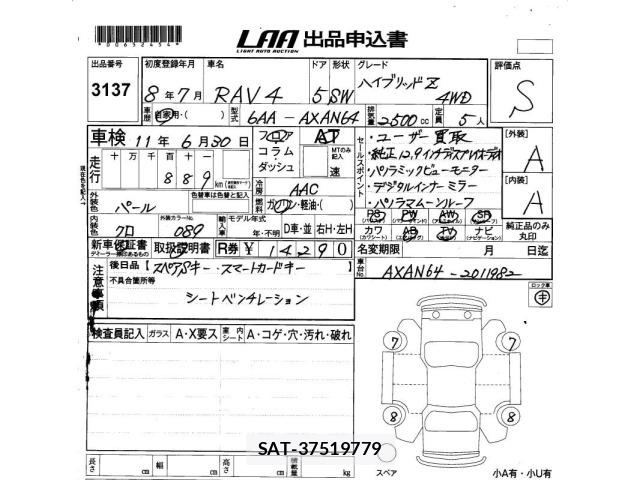 00632454
LAA 出品申込書
LIGHT AUTO AUCTION
出品番号 初度登録年月 車名 ドア 形状 グレード 評価点
3137 8年7月 RAV4 5 SW ハイブリッドZ 4WD S
車歴 自家用・( ) 型式 6AA-AXAN64 排気量 2500cc 定員 5人
車検 11年6月30日 フロア コラム ダッシュ AT MTのみ記入 速
セールスポイント
・ユーザー買取
・純正12.9インチディスプレイオーディオ
・パノラミックビューモニター
・デジタルインナーミラー
・パノラマムーンルーフ
[外装] A
[内装] A
走行 十万 万 千 百 十 一
889km
現在色を記入
外装色 パール 色替車は色替と記入
冷房 AAC
燃料 ガソリン・軽油・( )
PS PW AW SR
カワ AB TV ナビ 純正品のみ丸印
内装色 クロ 外装カラーNo. 089 輸入車 モデル年式 年・不明 D車・並 右H・左H
新車保証書 取扱説明書 R券 ¥14290 名変期限 月 日迄
ディーラー捺印あるもの
車台No. AXAN64-2011982
注意事項 後日品【スペアSキー・スマートカードキー】
不具合箇所等
シートベンチレーション
ロック車
キ
検査員記入 ガラス A・X要ス 室内シート A・コゲ・穴・汚れ・破れ
7 7
8 8
SAT-37519779
長さ cm 幅 cm 高さ cm 積載量 kg
スペア 小A有・小U有